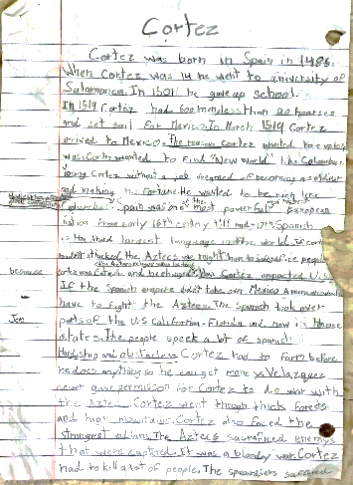 Cortez
Cortez was born in Spain in 1485.
When Cortez was 14 he went to university of
Salamanca. In 1501 he gave up school.
In 1519 Cortez had 600 men, less than 20 horses
and set sail for Mexico. In March 1519 Cortez
arrived to Mexico. The reason Cortez wanted to
was Cortez wanted to find "New World" like Columbus.
young Cortez without a job dreamed of becoming a soldier
and making his fortune. He wanted to be rich like
Spain was one of the most powerful European
from early 16th century till mid-17th Spanish
is the third largest language in the world. If Cortez
attacked the Aztecs we might have to sacrifice people
because Cortez was Catholic and he changed this. Cortez impacted U.S.
If the Spanish empire didn't take over Mexico Americans
have to fight the Aztecs. The Spanish took over
Jen parts of the U.S California, Florida and now in those
states. The people speak a lot of spanish.
Hardship and obstacless Cortez had to farm before
he does anything so he can get more . Velazquez
never gave permisson for Cortez to do war with
the Aztec. Cortez went through thick forests
and high mountains. Cortez also faced the
strongest indians. The Aztecs sacraficed enemys
that were captured. It was a bloody war. Cortez
had to kill a lot of people. The spaniers